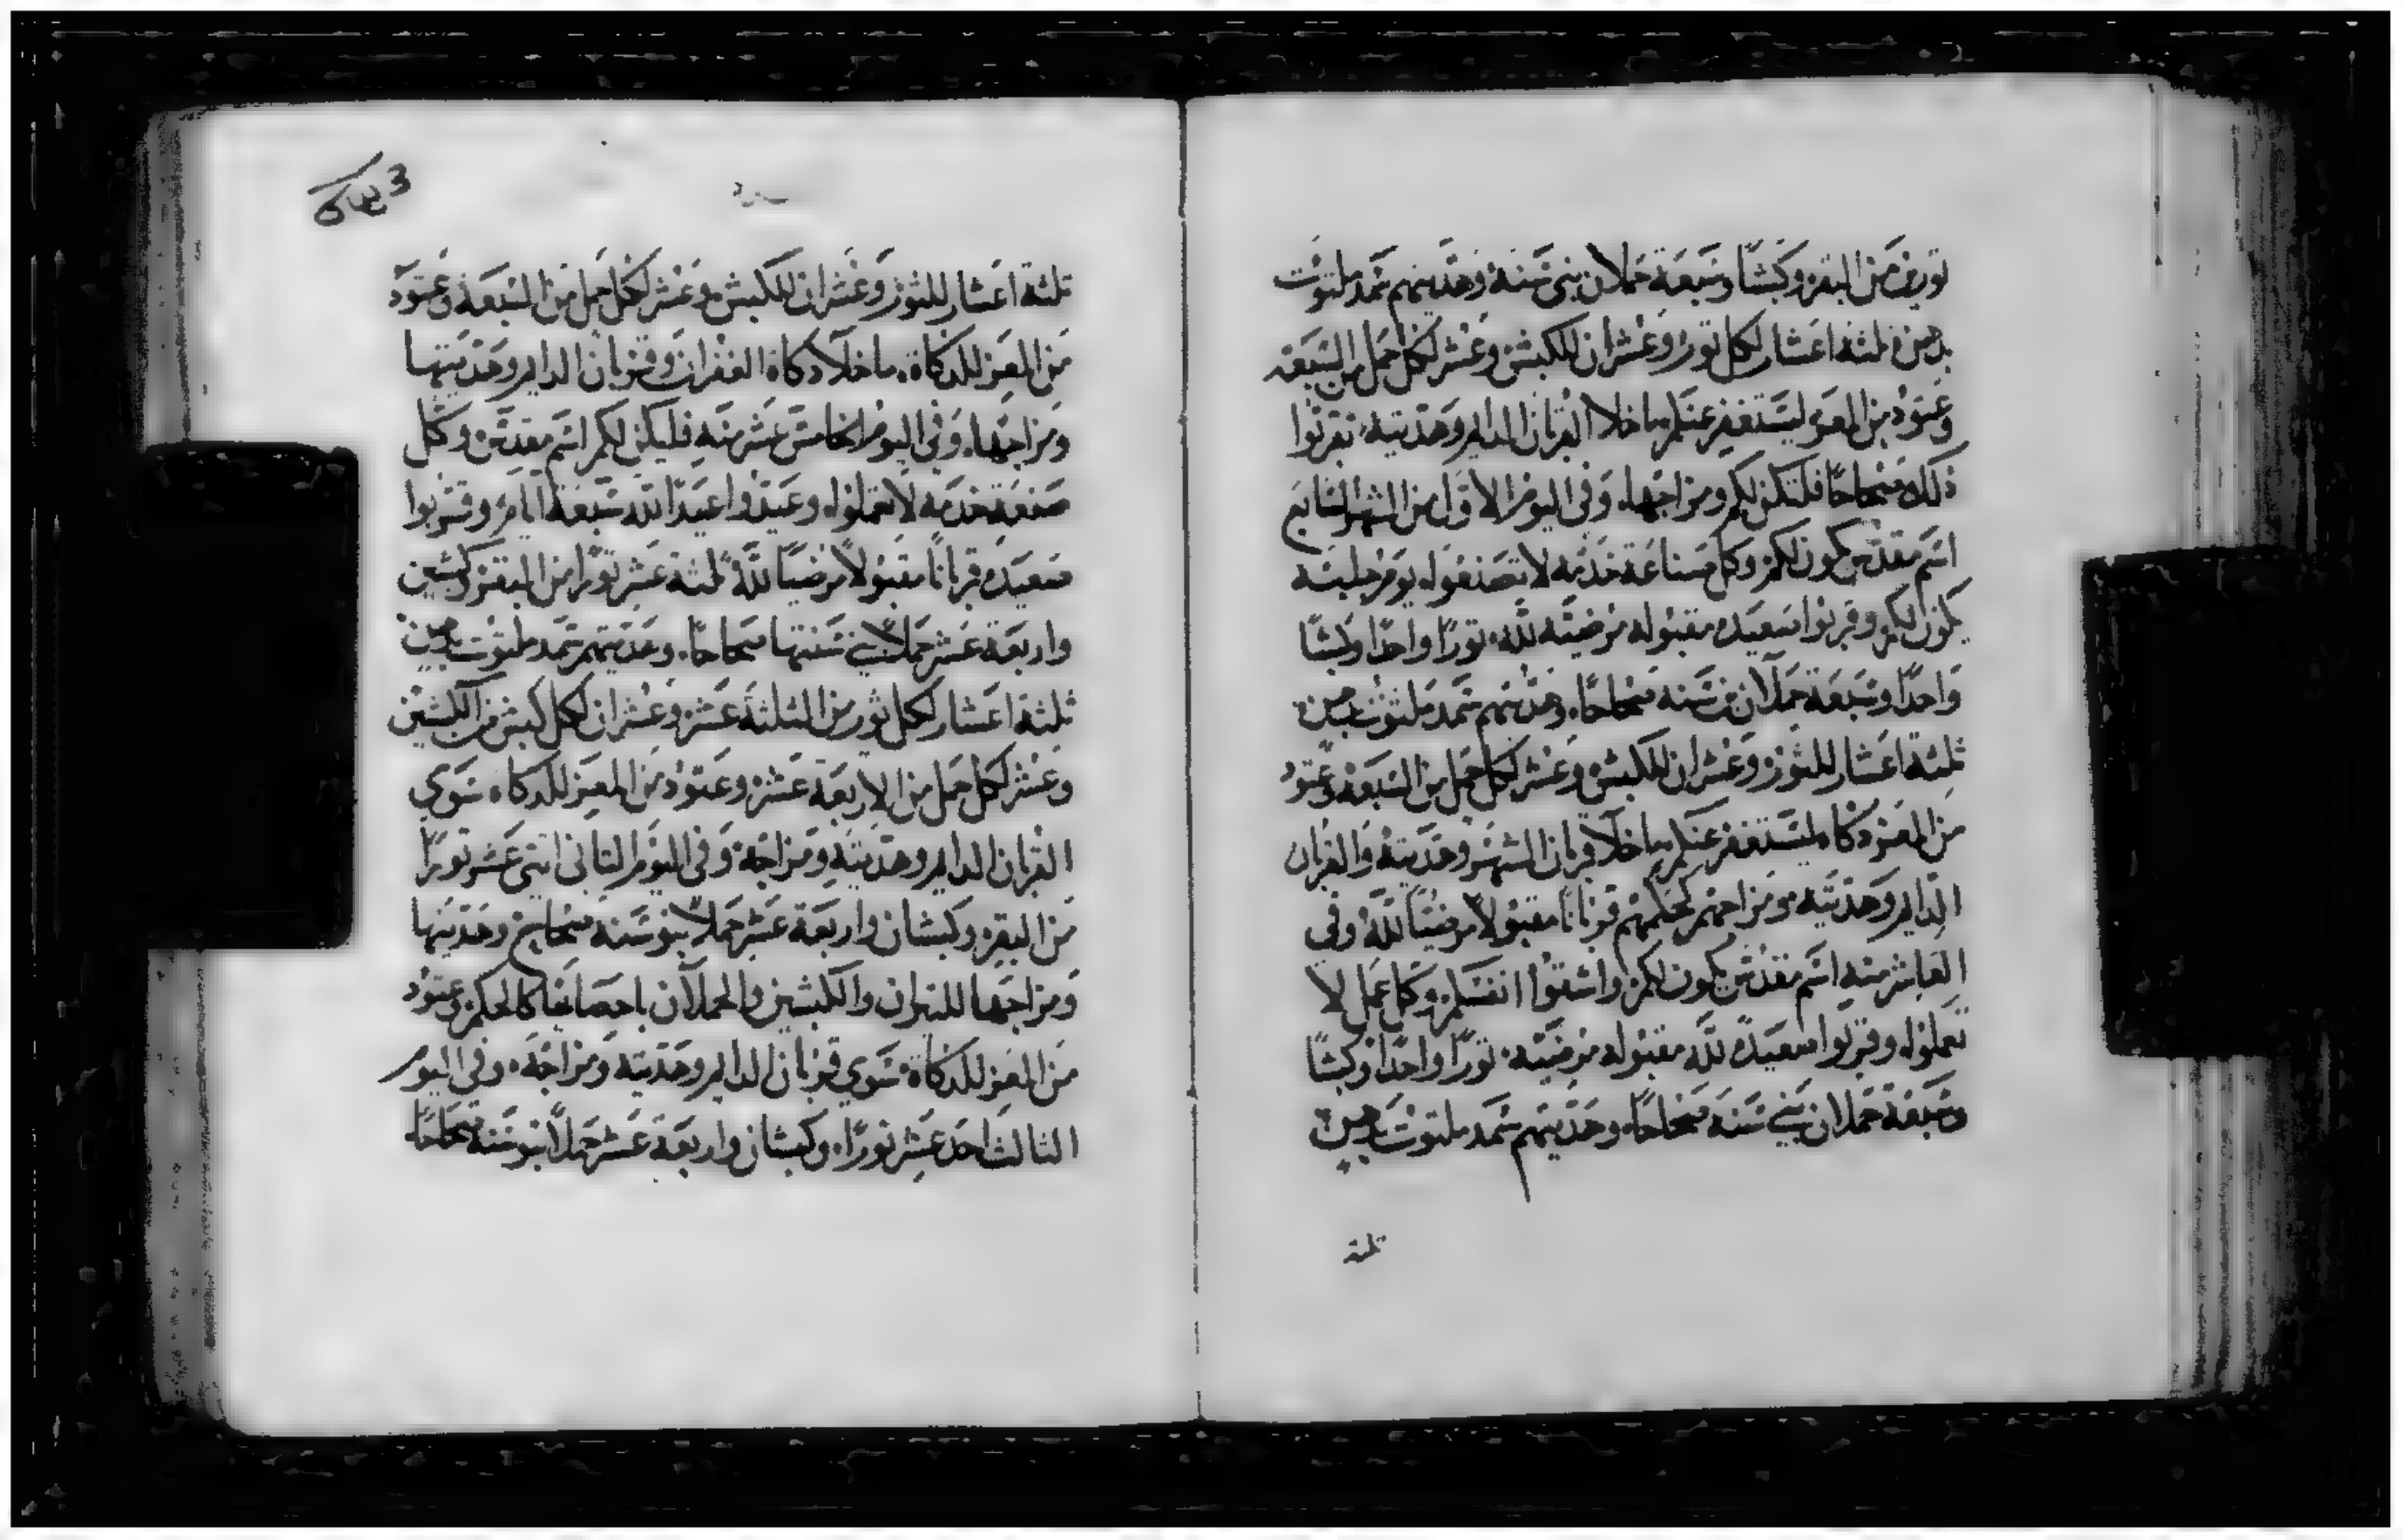 ثورين من البقر وكبشًا وسبعة حملان بني سنة وهديتهم سمد ملتوت
بدهن ثلثة اعشار لكل ثور وعشران للكبش وعشر لكل حمل من السبعة
وعتود من المعز ليستغفر عنكم ما خلا القربان الدايم وهديته تقربوا
ذلك صحاحًا فلتكن لكم ومزاجها وفي اليوم الاول من الشهر السابع
اسم مقدس يكون لكم وكل صناعة خدمه لا تصنعوا يوم جلبه
يكون لكم وقربوا صعيده مقبوله مرضيه لله ثورًا واحدًا وكبشًا
واحدًا وسبعة حملان من سنه صحاحًا وهديتهم سمد ملتوت بدهن
ثلثة اعشار للثور وعشران للكبش وعشر لكل حمل من السبعة وعتود
من المعز ذكاه ليستغفر عنكم ما خلا قربان الشهر وهديته والقربان
الدايم وهديته ومزاجهم كحكمهم قربانًا مقبولًا مرضيًا لله وفي
العاشر منه اسم مقدس يكون لكم واشقوا انفسكم وكل عمل لا
تعملوا وقربوا صعيدة لله مقبوله مرضيه ثورًا واحدًا وكبشًا
وسبعة حملان بني سنه صحاحًا وهديتهم سمد ملتوت بدهن
ثلثة
ثلثة اعشار للثور وعشران للكبش وعشر لكل حمل من السبعة وعتود
من المعز للذكاة ما خلا ذكاة الغفران وقربان الدايم وهديتها
ومزاجها وفي اليوم الخامس عشر منه فليكن لكم اسم مقدس وكل
صنعة خدمه لا تعملوا وعيدوا عيدًا لله سبعة ايام وقربوا
صعيده قربانًا مقبولًا مرضيًا لله ثلثة عشر ثورًا من البقر وكبشين
واربعة عشر حملًا بني سنتها صحاحًا وهديتهم سمد ملتوت بدهن
ثلثة اعشار لكل ثور من الثلثة عشر وعشران لكل كبش من الكبشين
وعشر لكل حمل من الاربعة عشر وعتود من المعز للذكاه سوي
القربان الدايم وهديته ومزاجه وفي اليوم الثاني اثني عشر ثورًا
من البقر وكبشان واربعة عشر حملًا بنو سنه صحاح وهديتها
ومزاجها للثيران والكبشين والحملان باحصايها كالحكم وعتود
من المعز للذكاة سوي قربان الدايم وهديته ومزاجه وفي اليوم
الثالث احد عشر ثورًا وكبشان واربعة عشر حملًا بنو سنة صحاحًا